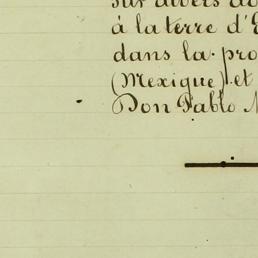 sur divers do
à la terre d'E
dans la pro
(Mexique) et
Don Pablo